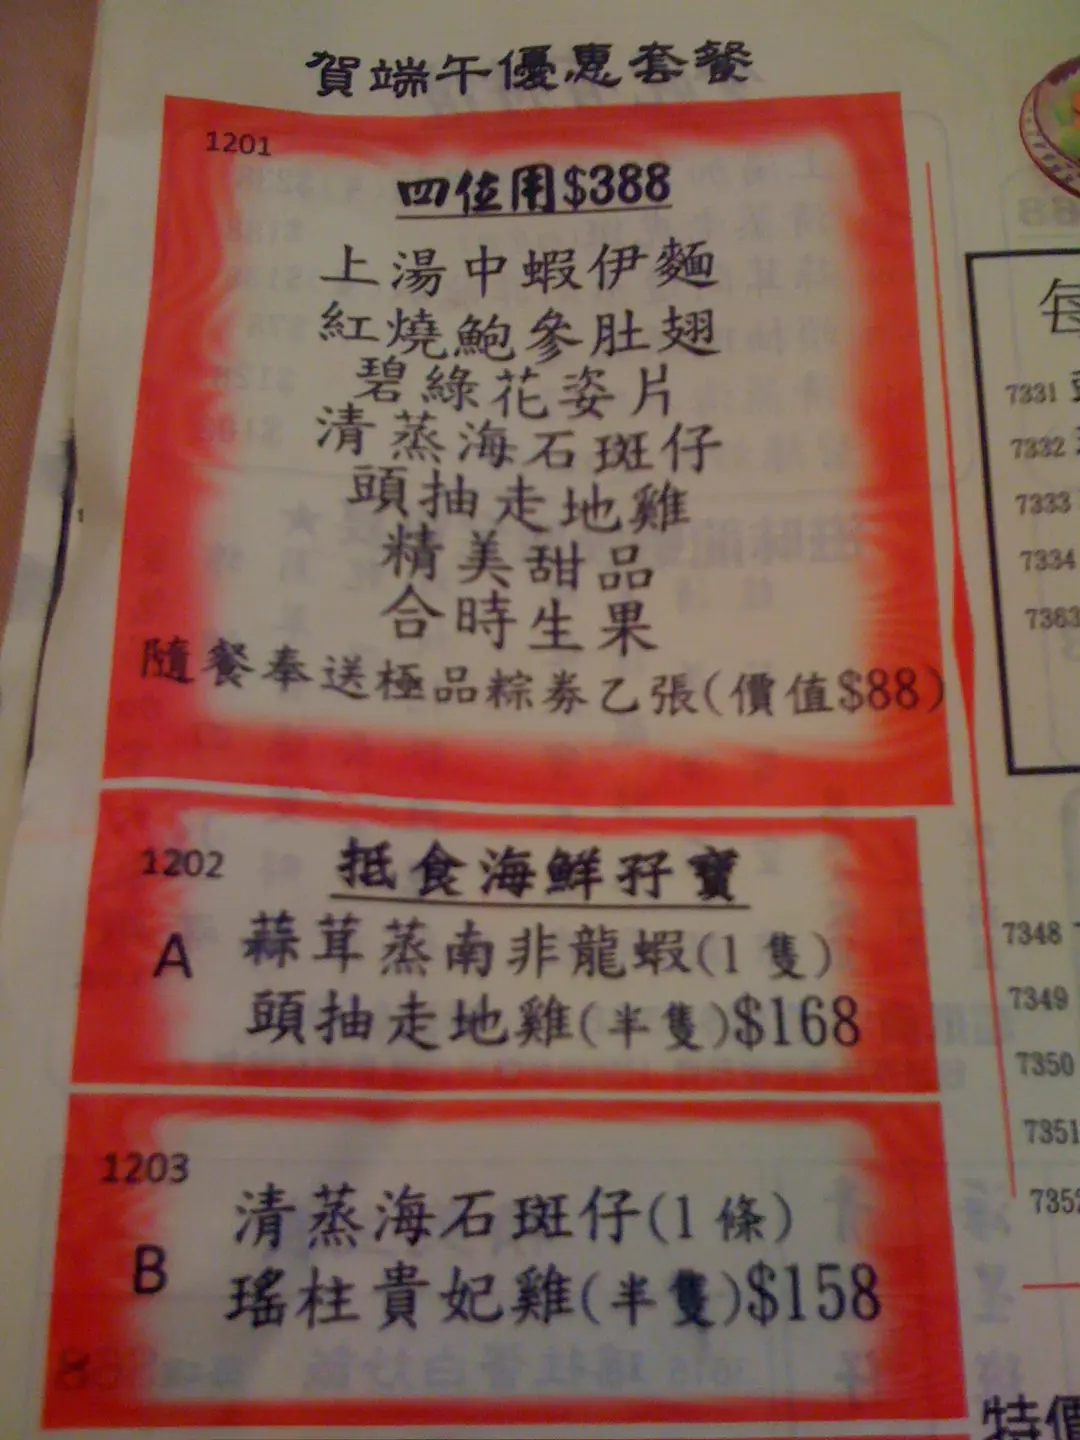 賀端午優惠套餐
1201
四位用$388
上湯中蝦伊麵
紅燒鮑參肚翅
碧綠花姿片
清蒸海石斑仔
頭抽走地雞
精美甜品
合時生果
隨餐奉送極品粽券乙張(價值$88)
1202
抵食海鮮孖寶
A
蒜茸蒸南非龍蝦(1隻)
頭抽走地雞(半隻)$168
1203
B
清蒸海石斑仔(1條)
瑤柱貴妃雞(半隻)$158
每
7331
7332
7333
7334
7363
7348
7349
7350
7351
7352
特價